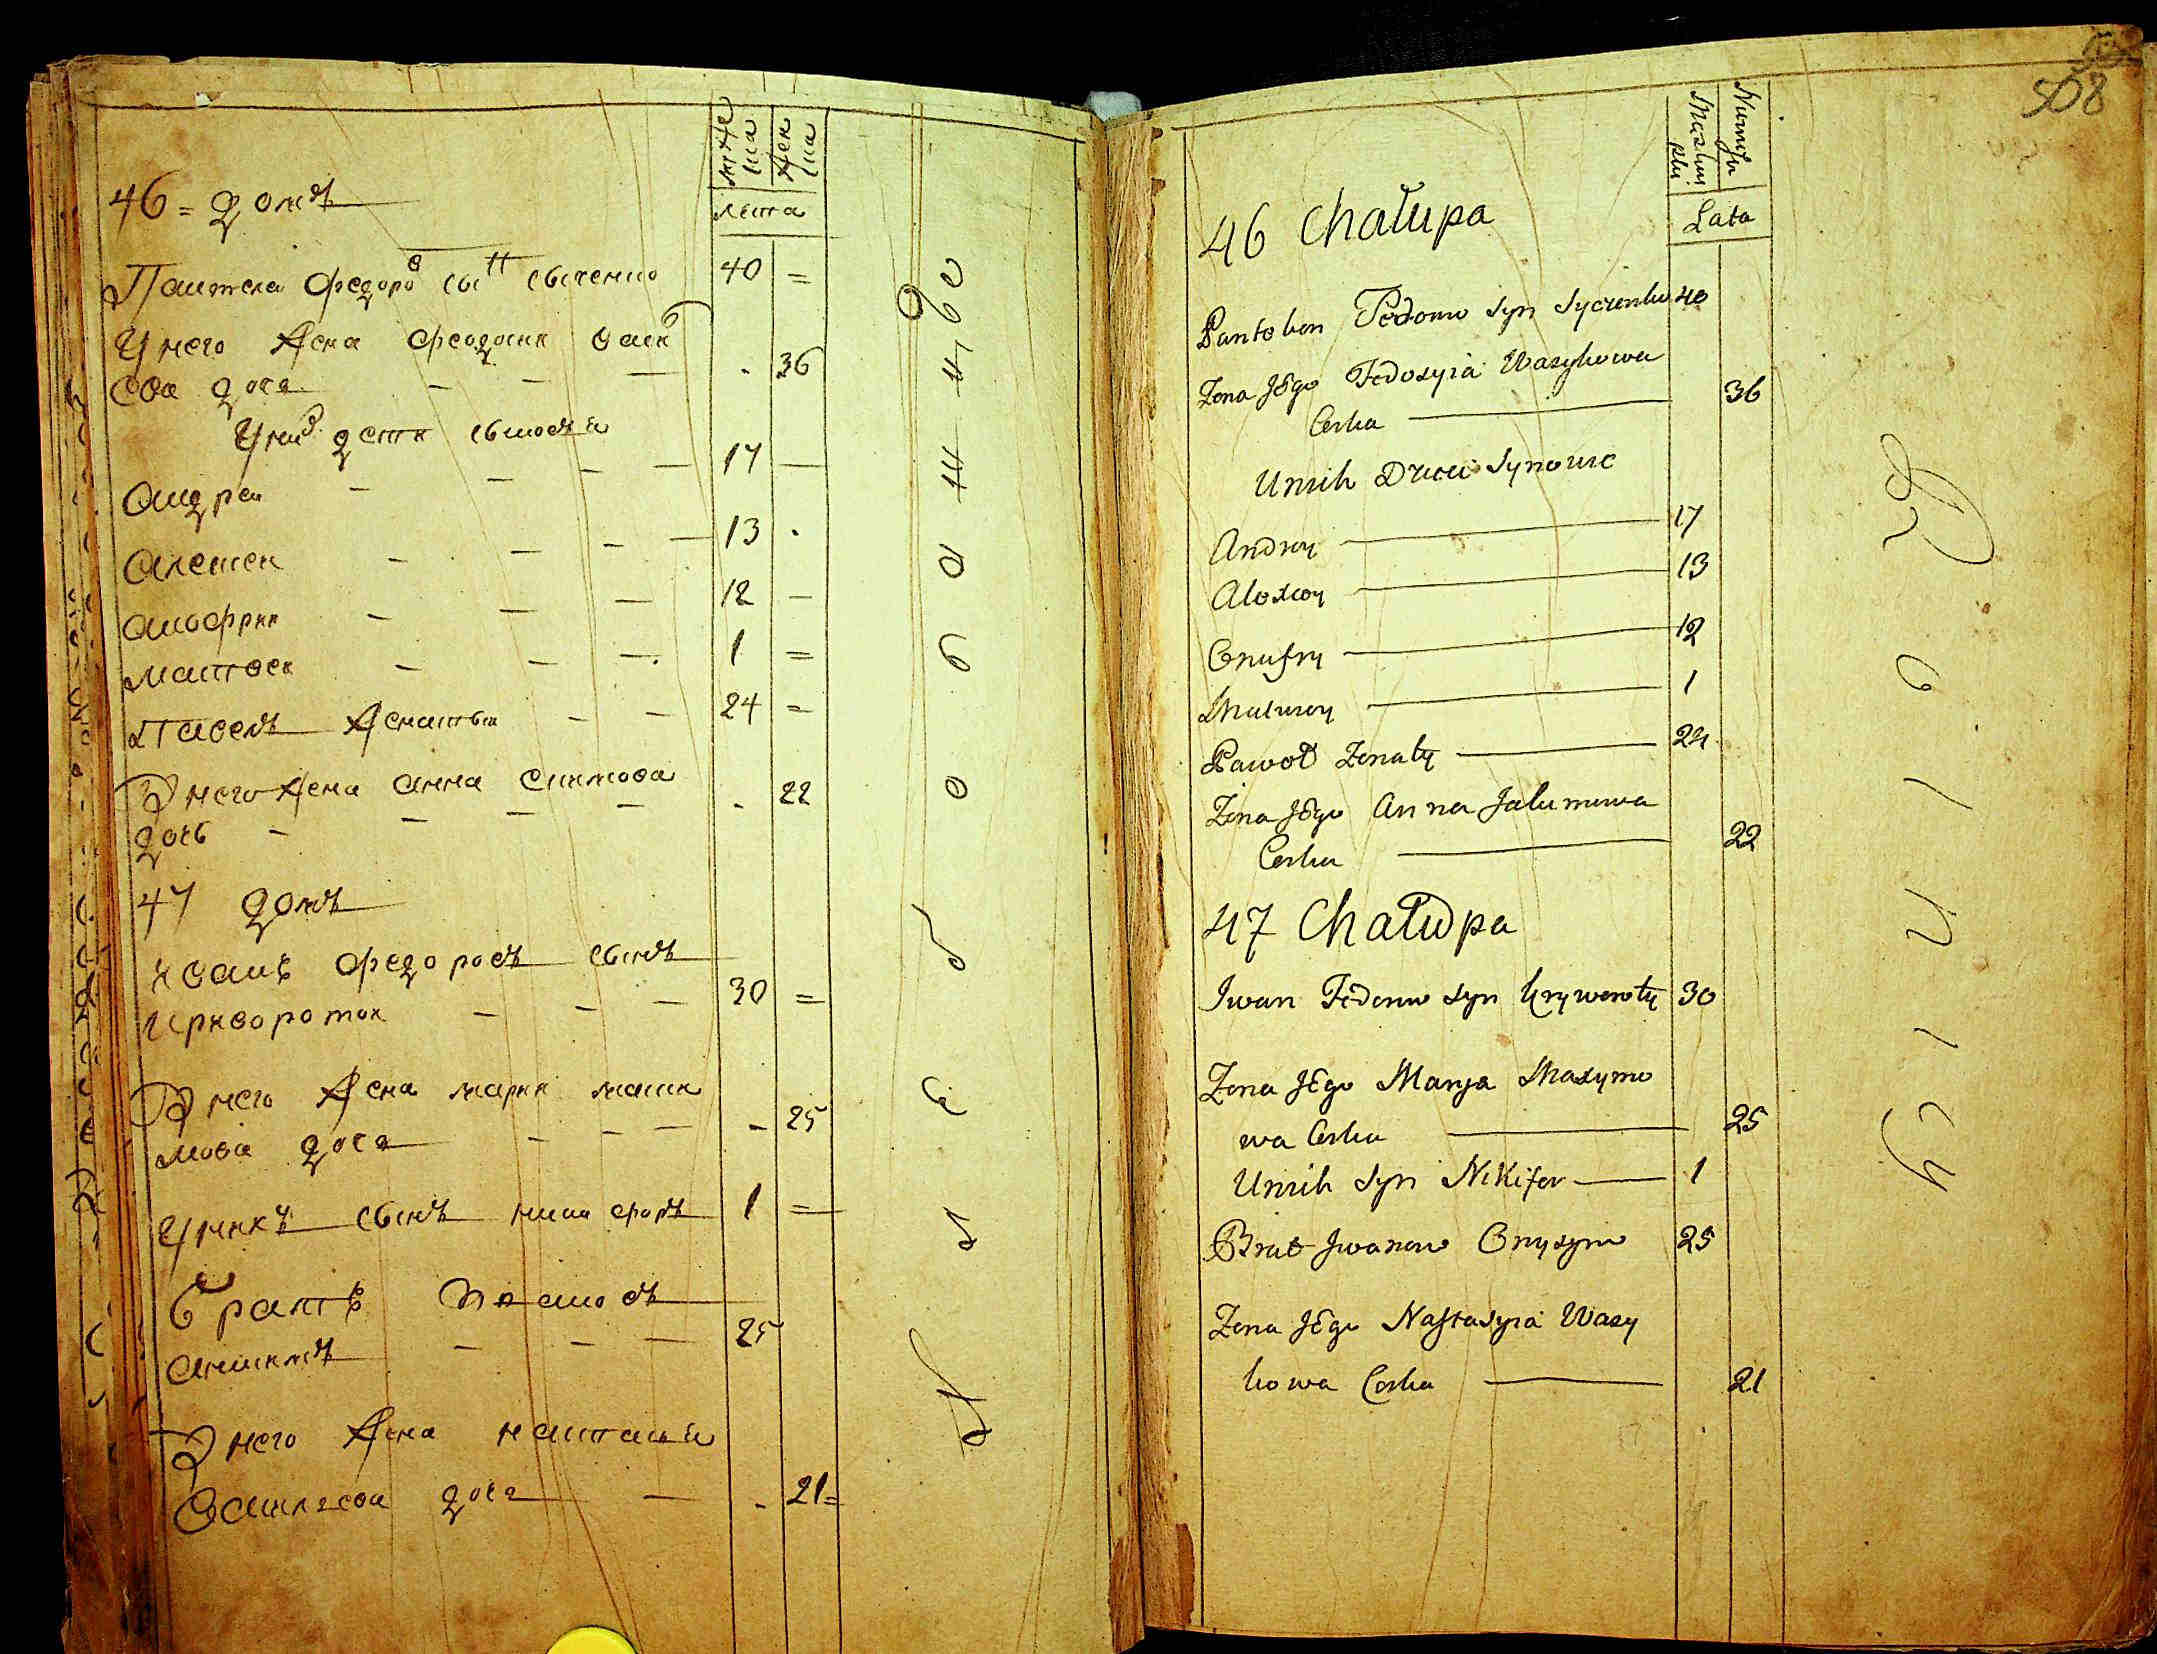 46 = домъ
мужска
женска
лета
Пантела Федоровъ сынъ Сыченко 40 =
У него жена Феодосия Васи
ева дочь - - - . 36
У них дети сыновя
Андрей - - - - 17 —
Алексей - - - - 13 .
Анофрий - - - 12 —
Матвей - - - 1 =
Павелъ женатый - - 24 =
У него жена Анна Якимова
дочь - - - - . 22
47 домъ
Иванъ Федоровъ сынъ
Криворотой - - - 30 =
У него жена Мария Макси
мова дочь - - - - 25
У нихъ сынъ Никифоръ 1 =
Братъ Ивановъ
Анисимъ - - - 25
У него жена Настасия
Василева дочь - . 21 =
508
Męzkiey płci
Lata
46 Chałupa
Pantelon Fedorow Syn Syczenko 40
Zona Jego Fedosyia Wasylowa
Corka 36
Unich Dzieci Synowie
Andrey 17
Alexiey 13
Onufry 12
Matwiey 1
Paweł Zonaty 24
Zona Jego Anna Jakimowa
Corka 22
47 Chałupa
Iwan Fedorow Syn Kryworoty 30
Zona Jego Marya Maxymo
wa Corka 25
Unich Syn Nikifor 1
Brat Iwanow Onysym 25
Zona Jego Nastasyia Wasy
lowa Corka 21